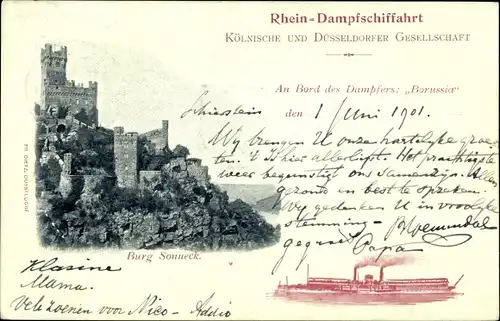 Rhein-Dampfschiffahrt
KÖLNISCHE UND DÜSSELDORFER GESELLSCHAFT
An Bord des Dampfers: „Borussia“
Schierstein den 1 Juni 1901.
Wij brengen U onze hartelijke groe-
ten. 't Is hier allerliefst. Het prachtigste
weer begunstigt ons Samenzijn. Alles
gezond en best te spreken.
Wij gedenken U in vroolijke
stemming
gegroet Papa
Burg Sonneck.
Klasine
Mama.
Vele zoenen voor Nico - Addio